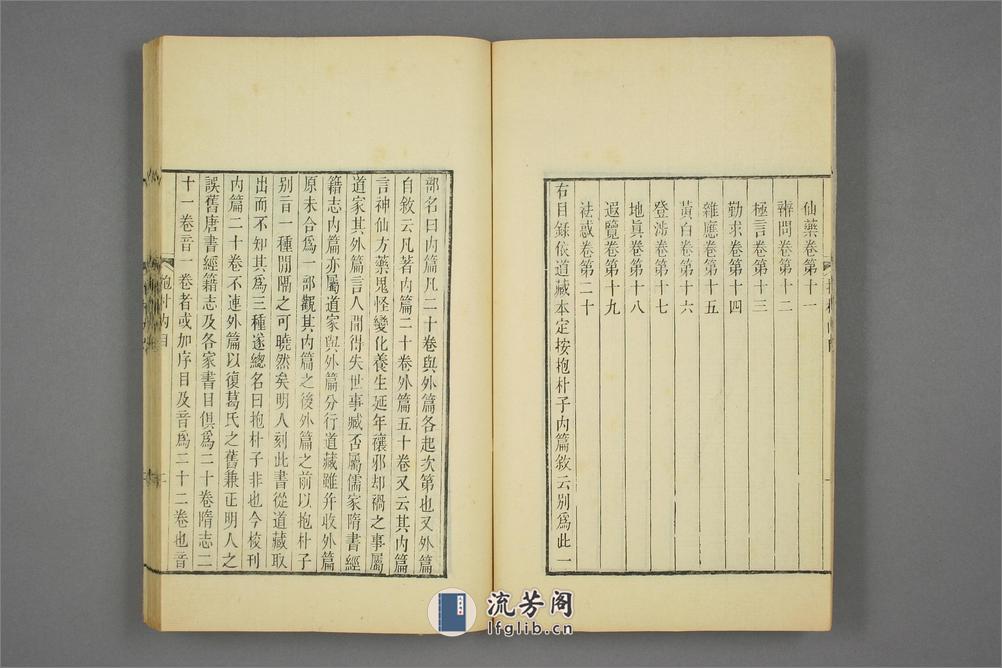 仙藥卷第十一
辯問卷第十二
極言卷第十三
勤求卷第十四
雜應卷第十五
黃白卷第十六
登涉卷第十七
地眞卷第十八
遐覽卷第十九
祛惑卷第二十
右目錄依道藏本定按抱朴子內篇敘云別爲此一
部名曰內篇凡二十卷與外篇各起次第也又外篇
自敘云凡著內篇二十卷外篇五十卷又云其內篇
言神仙方藥鬼怪變化養生延年禳邪却禍之事屬
道家其外篇言人閒得失世事臧否屬儒家隋書經
籍志內篇亦屬道家與外篇分行道藏雖并收外篇
原未合爲一部觀其內篇之後外篇之前以抱朴子
別旨一種閒隔之可曉然矣明人刻此書從道藏取
出而不知其爲三種遂總名曰抱朴子非也今校刊
內篇二十卷不連外篇以復葛氏之舊兼正明人之
誤舊唐書經籍志及各家書目俱爲二十卷隋志二
十一卷音一卷者或加序目及音爲二十二卷也音
抱朴內目
流芳阁
lfglib.cn